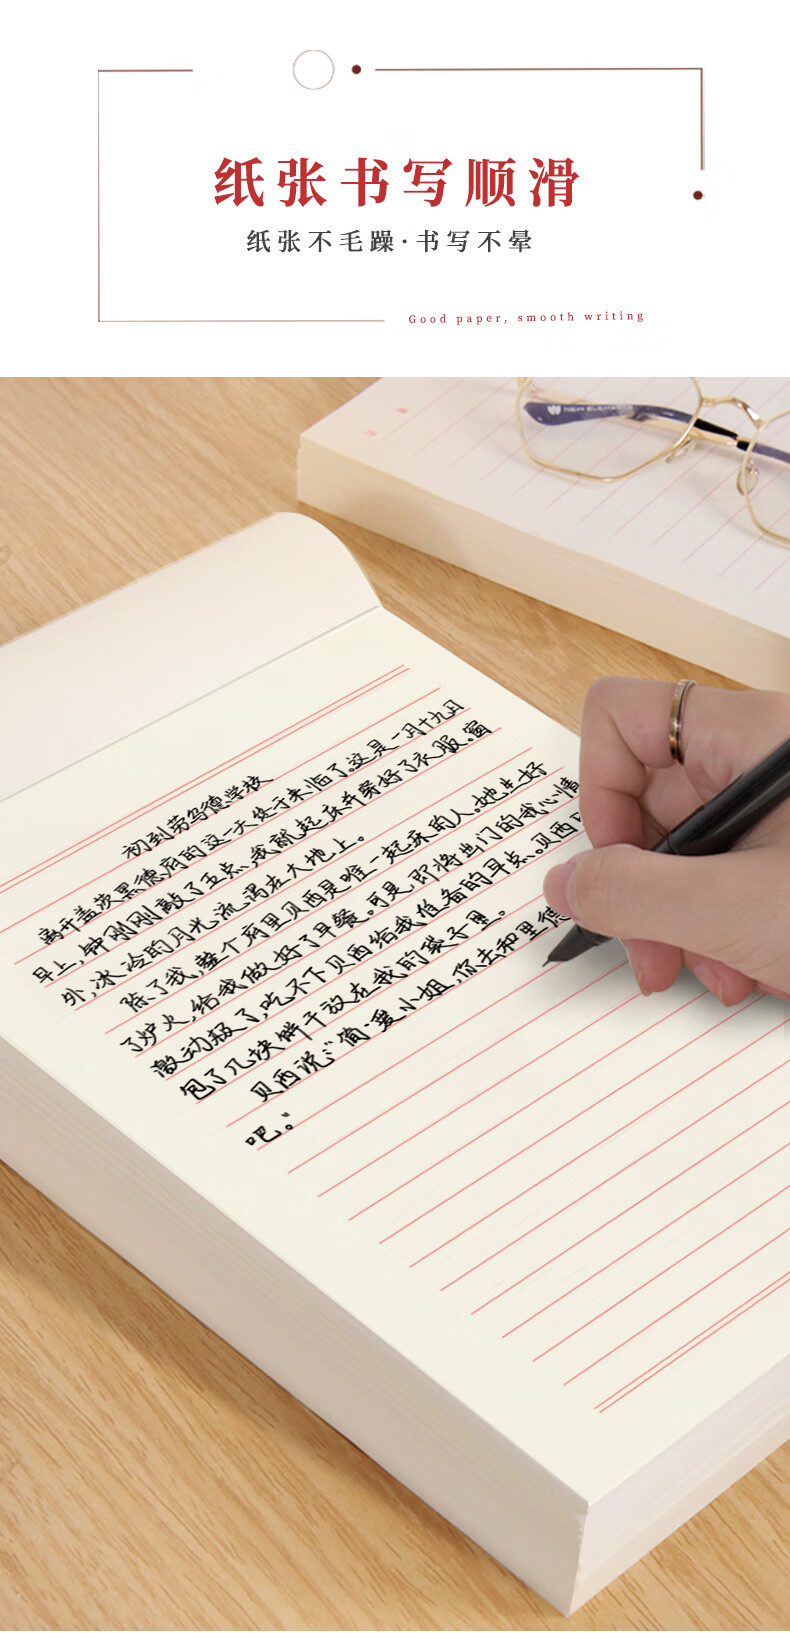 纸张书写顺滑
纸张不毛躁·书写不晕
Good paper, smooth writing
初到劳乌德学校
离开盖茨黑德府的这一天终于来临了。这是一月十九日
早上,钟刚刚敲了五点,我就起床并穿好了衣服。窗
外,冰冷的月光流淌在大地上。
除了我,整个府里贝西是唯一起床的人。她生好
了炉火,给我做好了早餐。可是,即将出门的我心情
激动极了,吃不下贝西给我准备的早点。贝西
包了几块饼干放在我的袋子里。
贝西说:“简·爱小姐,你去和里德
吧。”